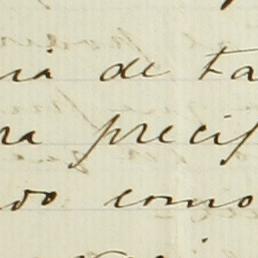 ria de ta
ra precis
do como